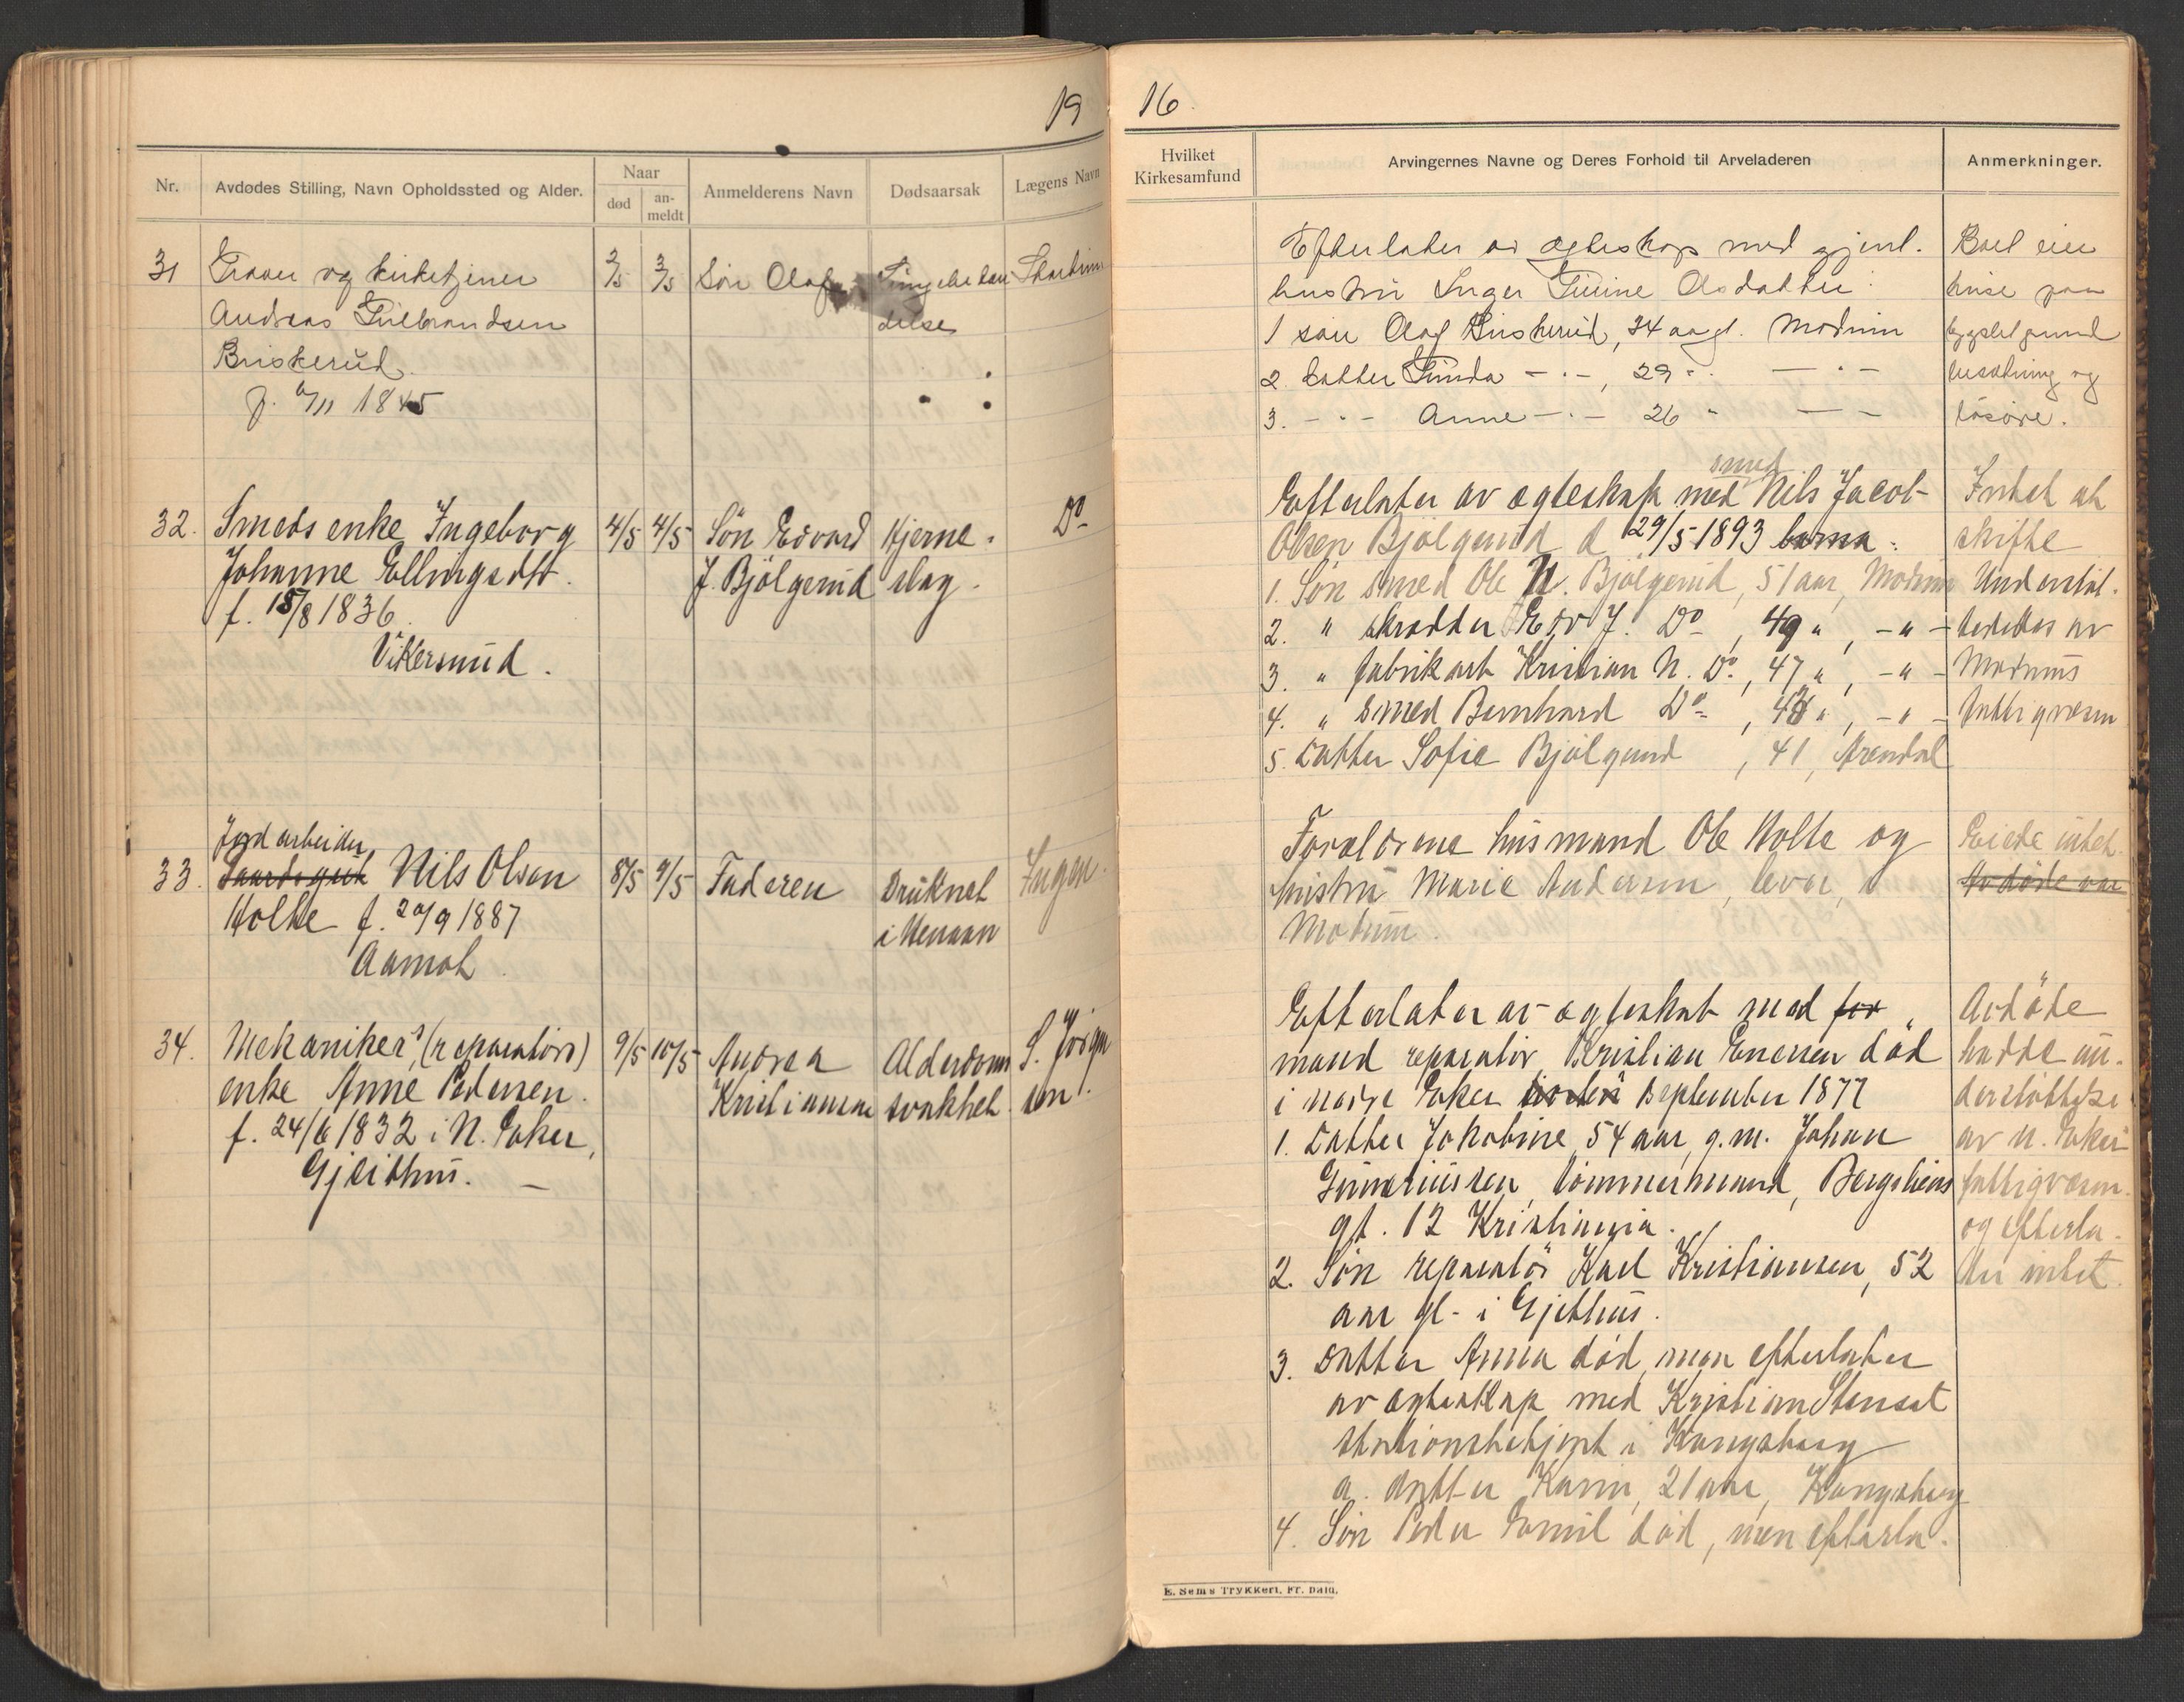 19
Nr.
Avdødes Stilling, Navn Opholdssted og Alder.
Naar
død
an-
meldt
Anmelderens Navn
Dødsaarsak
Lægens Navn
31
Graver og kirketjener
Andreas Gulbrandsen
Briskerud.
f. 6/11 1845
2/5
3/5
Søn Olaf
delse
32.
Smeds enke Ingeborg
Johanne Ellingsdtr.
f. 15/8 1836.
Vikersund.
4/5
4/5
Søn Edvard
J. Bjølgerud
Hjerne-
slag.
Do
33.
Jordarbeider
Gaardsgut Nils Olsen
Holte f. 20/9 1887
Aamot
8/5
9/5
Faderen
Druknet
i
Ingen.
34.
Mekanikers, (reparatørs)
enke Anne Pedersen.
f. 24/6 1832 i N. Eker,
Gjeithus. —
9/5
10/5
Andrea
Kristiansen
Alderdoms
svakhet
S. Jørgen
sen.
16.
Hvilket
Kirkesamfund
Arvingernes Navne og Deres Forhold til Arveladeren
Anmerkninger.
Efterlater av egteskap med gjenl.
hustru Inger Gurine Olsdatter:
1 søn Olaf Briskerud, 34 aar gl. Modum
2. datter Gunda -"-, 29 " -"-
3. -"- Anne -"- 26 " -"-
Boet eier
huse paa
bygslet grund
besætning og
løsøre.
smed
Efterlater av egteskap med Nils Jacob
Olsen Bjølgerud d 29/5 1893 barna:
1. Søn smed Ole N. Bjølgerud, 51 aar, Modum
2. " skrædder Edv J. Do, 49 ", -"-
3. " fabrikarb Kristian N. Do, 47 ", -"-
4. " smed Bernhard Do, 43 ", -"-
5. Datter Sofie Bjølgerud, 41, Arendal
Intet at
skifte
Understøt-
tedes av
Modums
fattigvæsen
Forældrene husmand Ole Holte og
hustru Marie Andersen, lever, i
Modum.
Eiede intet.
Avdøde var
Efterlater av egteskab med for
mand reparatør Kristian Enersen død
i nedre Eker september 1877
1. Datter Jokobine 54 aar, g.m. Johan
Guneriussen, tømmermand, Bergsliens
gt. 12 Kristiania.
2. Søn reparatør Karl Kristiansen, 52
aar gl- i Gjethus.
3. Datter Anna død, men efterlater
av egteskap med Kristian Stenset
stationsbetjent i Kongsberg
a. datter Karin, 21 aar, Kongsberg
4. Søn Peder Emil død, men efterla-
Avdøde
hadde un-
derstøttelse
av N. Eker
fattigvæsen.
og efterla-
der intet.
E. Sems Trykkeri, Fr. hald.